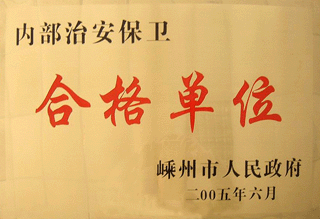 内部治安保卫
合格单位
嵊州市人民政府
二00五年六月